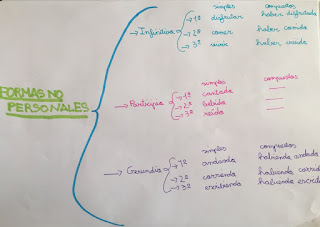 FORMAS NO
PERSONALES
simples compuestos
→ Infinitivo → 1ª disfrutar haber disfrutado
→ 2ª comer haber comido
→ 3ª haber
simples compuestos
→ Participio → 1ª cantado —
→ 2ª bebido —
→ 3ª —
simples compuestos
→ Gerundio → 1ª andando habiendo andado
→ 2ª corriendo habiendo corrido
→ 3ª escribiendo habiendo escrito